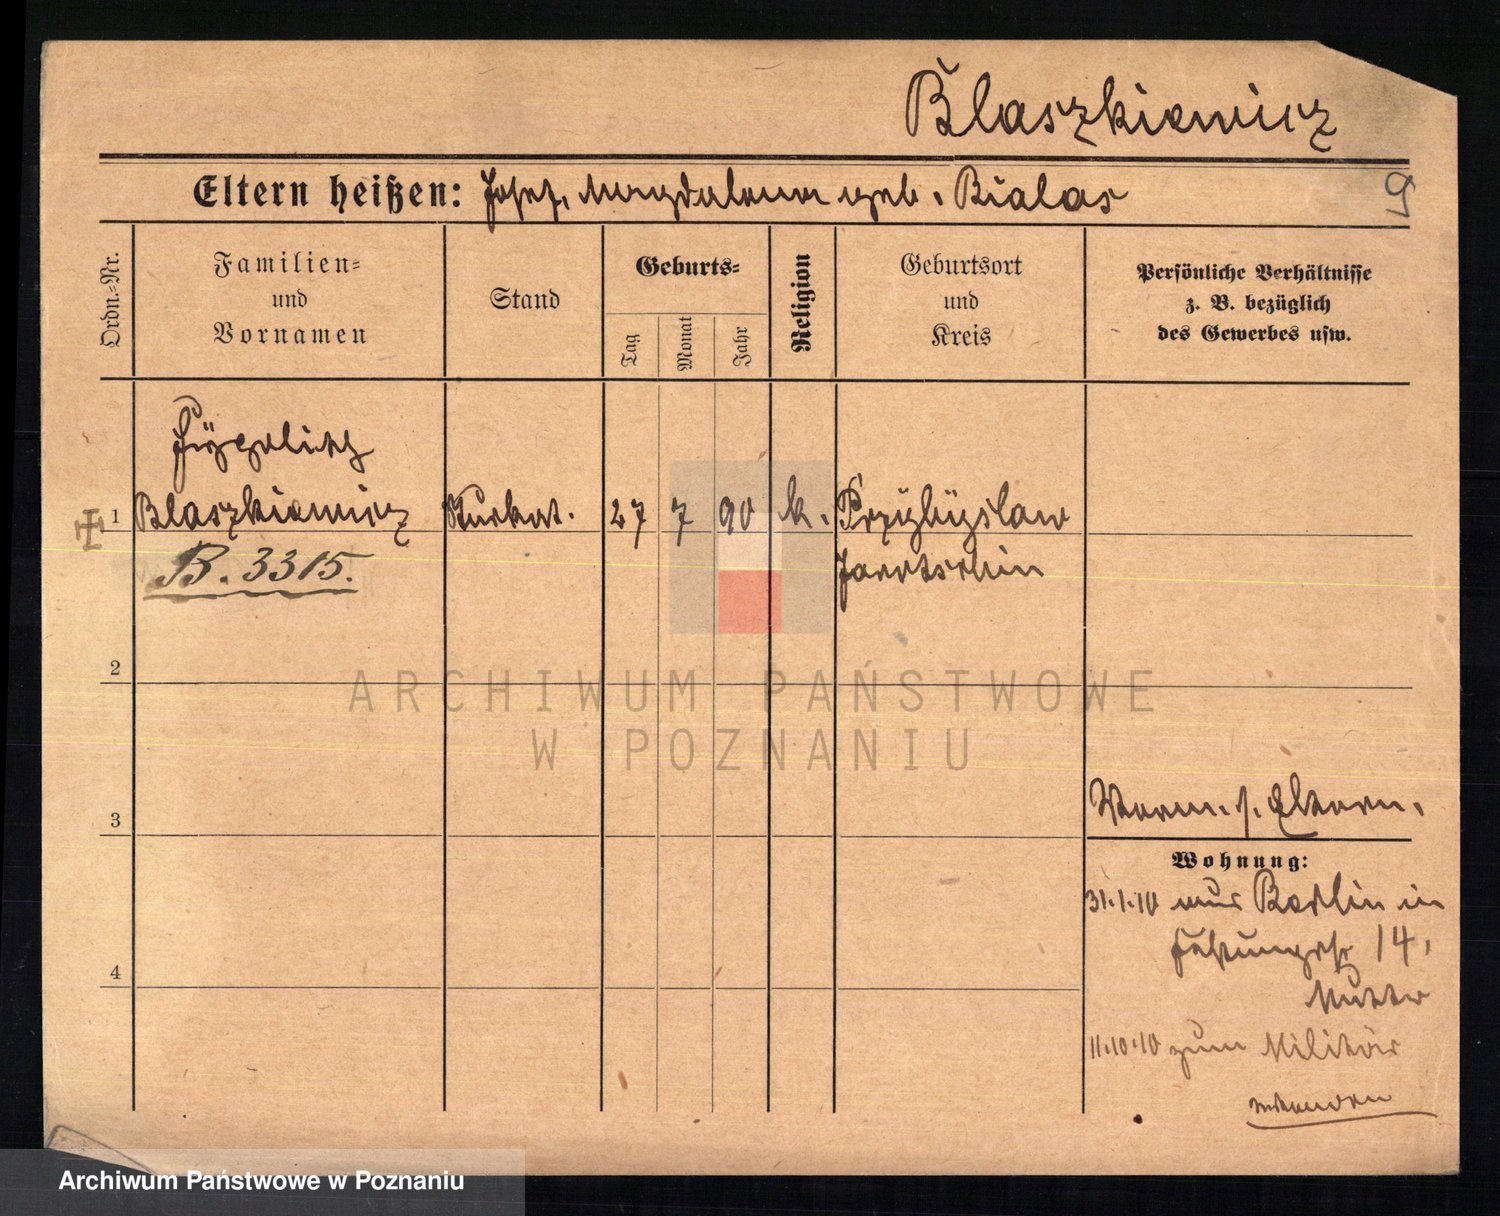 Blaszkiewicz
Eltern heißen: Josef, Magdalena geb. Bialas
Ordn.-Nr.
Familien-
und
Vornamen
Stand
Geburts-
Tag
Monat
Jahr
Religion
Geburtsort
und
Kreis
Persönliche Verhältnisse
z. B. bezüglich
des Gewerbes usw.
1
Blaszkiewicz
27
7
90
k.
Przybyslaw
Jarotschin
B. 3315.
2
3
Eltern.
Wohnung:
31.1.10 aus Berlin in
14,
Mutter
4
11.10.10 zum Militär
ARCHIWUM PAŃSTWOWE
W POZNANIU
Archiwum Państwowe w Poznaniu